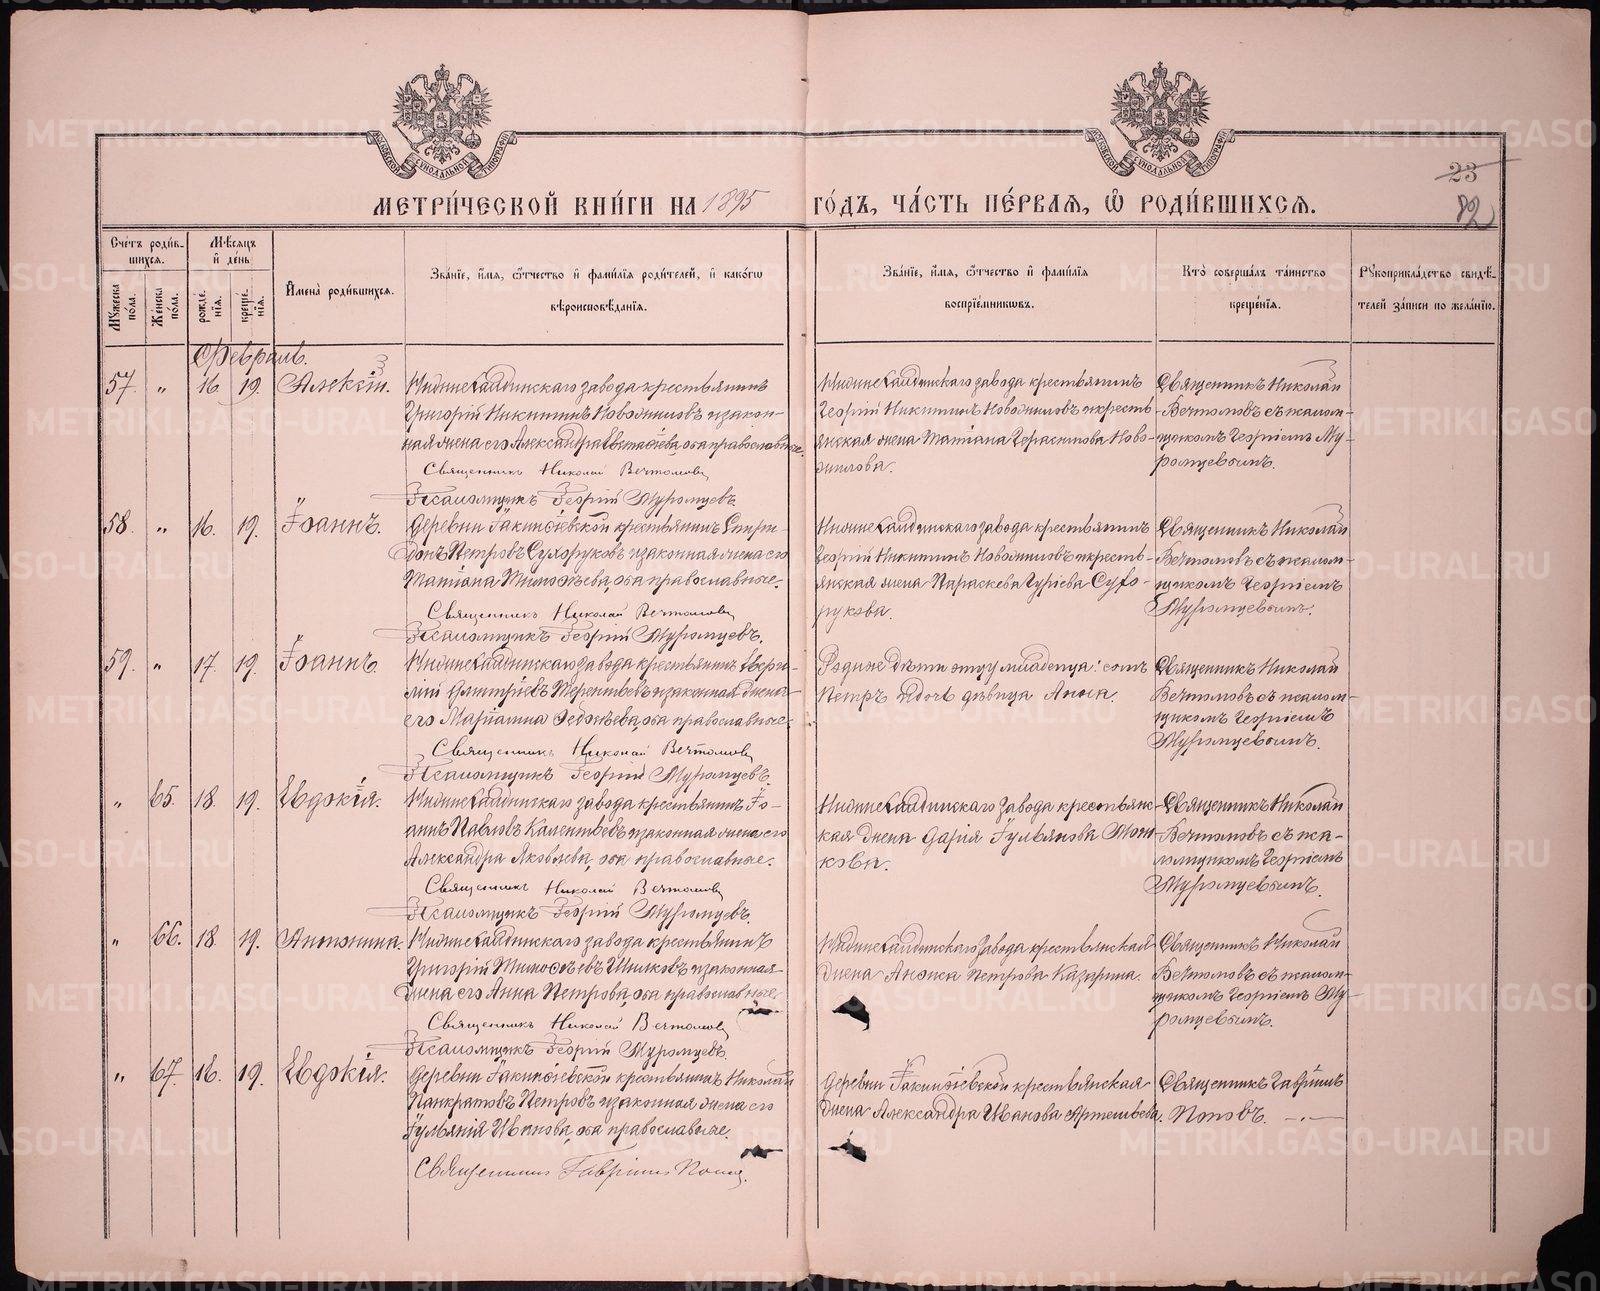 МЕТРИ́ЧЕСКОЙ КНИ́ГИ НА 1895 ГО́ДЪ, ЧА́СТЬ ПЕ́РВАЯ, Ѡ РОДИ́ВШИХСЯ.
23
82
Сче́тъ роди́в-
шихся.
Му́жеска по́ла.
Же́нска по́ла.
Мѣ́сяцъ
и де́нь
рожде́нія.
креще́нія.
Имена̀ роди́вшихся.
Зва́ніе, и́мя, ѻ́тчество и фами́лія роди́телей, и како́гѡ
вѣроисповѣ́данія.
Зва́ніе, и́мя, ѻ́тчество и фами́лія
воспріе́мникѡвъ.
Кто̀ соверша́лъ та́инство
креще́нія.
Рукоприкла́дство свидѣ́-
телей за́писи по жела́нію.
Февраль.
57. „ 16. 19. Алексій.
Нижнесалдинскаго завода крестьянинъ
Григорій Никитинъ Новожиловъ и закон-
ная жена его Александра Евстафіева, оба православные.
Священникъ Николай Вечтомовъ
Псаломщикъ Георгій Муромцевъ
Нижнесалдинскаго завода крестьянинъ
Георгій Никитинъ Новожиловъ и кресть-
янская жена Татіана Герасимова Ново-
жилова.
Священникъ Николай
Вечтомовъ съ псалом-
щикомъ Георгіемъ Му-
ромцевымъ.
58. „ 16. 19. Іоаннъ.
Деревни Іакинѳіевской крестьянинъ Спири-
донъ Петровъ Сухоруковъ и законная жена его
Татіана Тимоѳѣева, оба православные.
Священникъ Николай Вечтомовъ
Псаломщикъ Георгій Муромцевъ.
Нижнесалдинскаго завода крестьянинъ
Георгій Никитинъ Новожиловъ и кресть-
янская жена Параскева Гуріева Сухо-
рукова.
Священникъ Николай
Вечтомовъ съ псалом-
щикомъ Георгіемъ
Муромцевымъ.
59. „ 17. 19. Іоаннъ.
Нижнесалдинскаго завода крестьянинъ
Димитріевъ Терентьевъ и законная жена
его Маріамна Ѳедоѣева, оба православные.
Священникъ Николай Вечтомовъ
Псаломщикъ Георгій Муромцевъ.
Родные дѣти отцу младенца: сынъ
Петръ и дочь дѣвица Анна.
Священникъ Николай
Вечтомовъ съ псалом-
щикомъ Георгіемъ
Муромцевымъ.
„ 65. 18. 19. Евдокія.
Нижнесалдинскаго завода крестьянинъ Іо-
аннъ Павловъ Калентьевъ и законная жена его
Александра Яковлева, оба православные.
Священникъ Николай Вечтомовъ
Псаломщикъ Георгій Муромцевъ.
Нижнесалдинскаго завода крестьянс-
кая жена Дарія Іульянова
Священникъ Николай
Вечтомовъ съ пса-
ломщикомъ Георгіемъ
Муромцевымъ.
„ 66. 18. 19. Антонина.
Нижнесалдинскаго завода крестьянинъ
Григорій Тимоѳѣевъ Шилковъ и законная
жена его Анна Петрова, оба православные.
Священникъ Николай Вечтомовъ
Псаломщикъ Георгій Муромцевъ.
Нижнесалдинскаго завода крестьянская
жена Анѳиса Петрова Казарина.
Священникъ Николай
Вечтомовъ съ псалом-
щикомъ Георгіемъ Му-
ромцевымъ.
„ 67. 16. 19. Евдокія.
Деревни Іакинѳіевской крестьянинъ Николай
Панкратовъ Петровъ и законная жена его
Іуліанія Иванова, оба православные.
Священникъ Гавріилъ Поповъ.
Деревни Іакинѳіевской крестьянская
жена Александра Иванова Артемьева.
Священникъ Гавріилъ
Поповъ.
METRIKI.GASO-URAL.RU